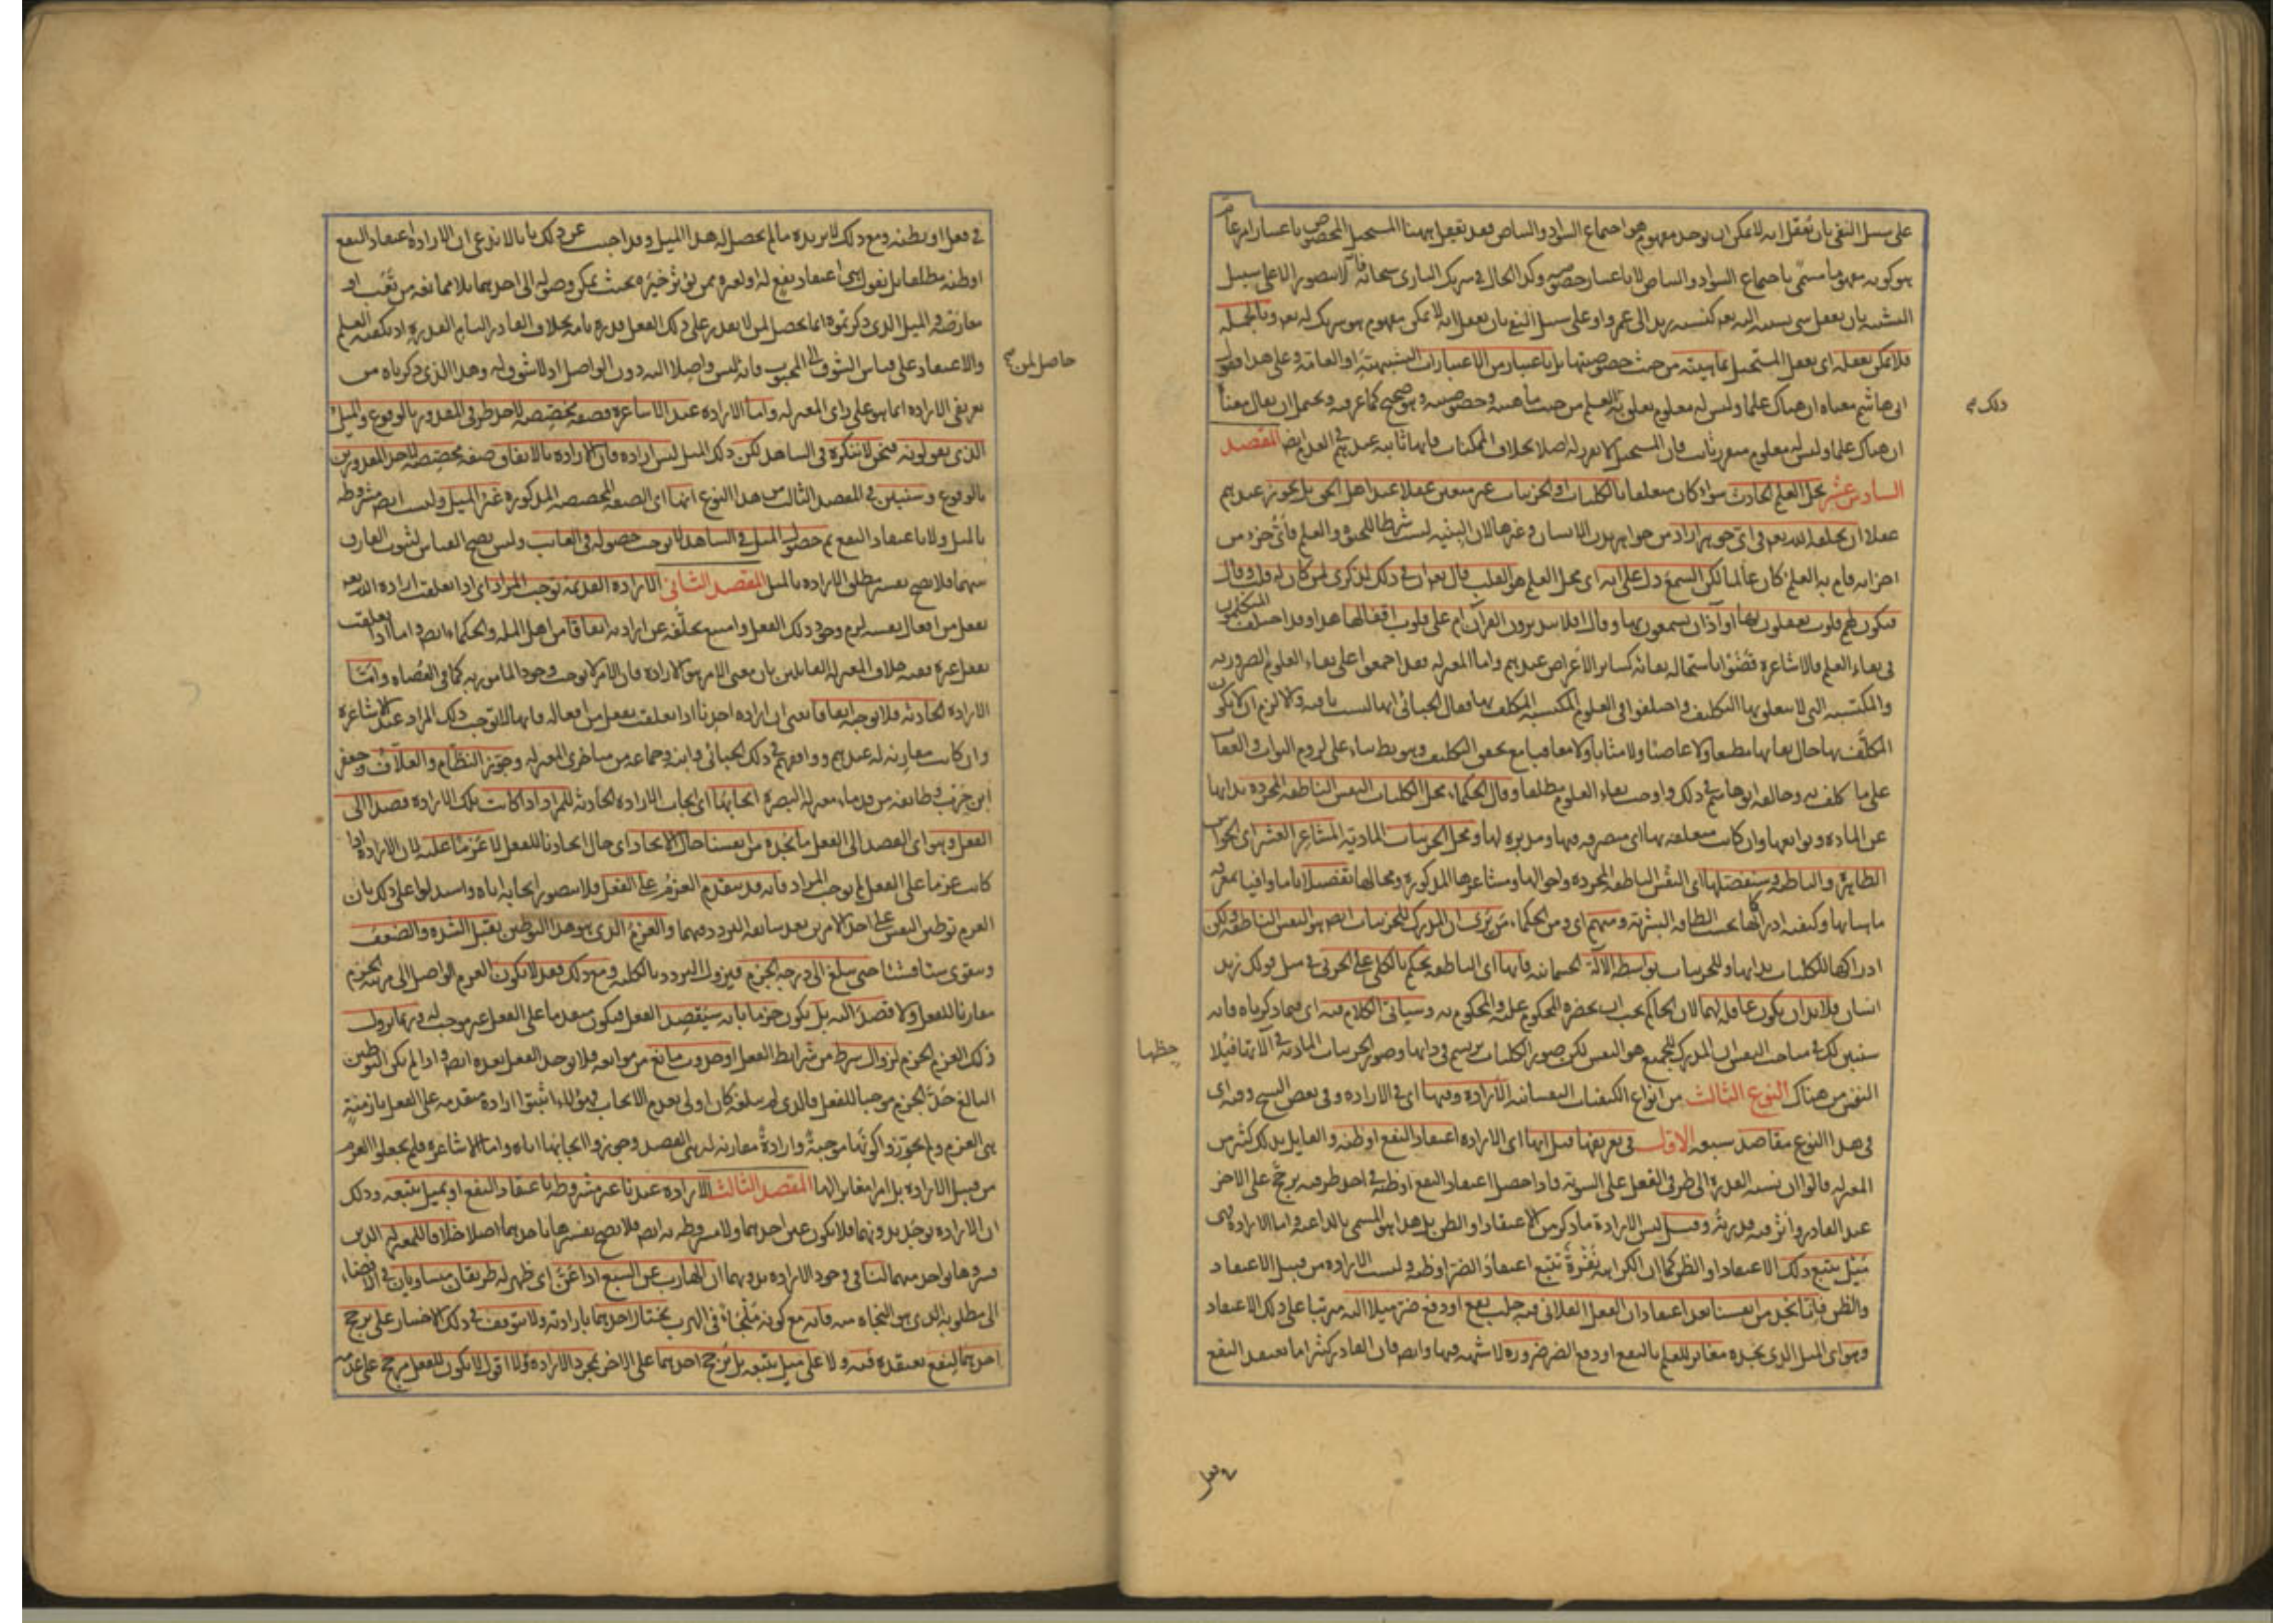 على سبيل النفي بان تعقل انه لا يمكن ان يوجد مفهوم هو اجتماع السواد والبياض فقد تعقل ههنا المستحيل المخصوص باعتبار امر عام
هو كونه مفهوما مسمى باجتماع السواد والبياض لا باعتبار خصوصه وكذا الحال في شريك الباري سبحانه فانه لا يتصور الا على سبيل
التشبيه بان يعقل شي نسبته اليه تعه كنسبة زيد الى عمرو او على سبيل النفي بان يعقل انه لا يمكن مفهوم هو شريك له تعه وبالجملة
فلا يمكن تعقله اي تعقل المستحيل بماهيته من حيث خصوصيتها بل باعتبار من الاعتبارات التشبيهية او العامة وعلى هذا فقول
ابي هاشم معناه ان هناك علما وليس له معلوم يتعلق به العلم من حيث ماهيته وخصوصيته وهو صحيح كما عرفته ويحتمل ان يقال معناه
ذلك صح
ان هناك علما وليس له معلوم متقرر ثابت فان المستحيل لا تقرر له اصلا بخلاف الممكنات فانها ثابته عندهم في العدم ايضا المقصد
السادس عشر محل العلم الحادث سواء كان متعلقا بالكليات او الجزئيات غير متعين عقلا عند اهل الحق بل يجوز عندهم
عقلا ان يخلقه الله تعه في اي جوهر اراد من جواهر بدن الانسان وغيرها لان البنيه ليست شرطا للحيوة والعلم فاي جزء من
اجزائه قام به العلم كان عالما لكن السمع دل على انه اي محل العلم هو القلب قال تعه ان في ذلك لذكرى لمن كان له قلب وقال
فتكون لهم قلوب يعقلون بها او آذان يسمعون بها وقال افلا يتدبرون القرآن ام على قلوب اقفالها هذا وقد اختلف المتكلمون
في بقاء العلم فالاشاعرة قضوا باستحالة بقائه كسائر الأعراض عندهم واما المعتزله فقد اجمعوا على بقاء العلوم الضروريه
والمكتسبه التي لا يتعلق بها التكليف واختلفوا في العلوم المكتسبه المكلف بها فقال الجبائي انها ليست باقيه والا لزم ان لا يكون
المكلف بها حال بقائها مطيعا ولا عاصيا ولا مثابا ولا معاقبا مع تحقق التكليف وهو بط بناء على لزوم الثواب والعقاب
على ما كلف به وخالفه ابو هاشم في ذلك واوجب بقاء العلوم مطلقا وقال الحكماء محل الكليات النفس الناطقه المجرده بذاتها
عن الماده وتوابعها وان كانت متعلقه بها اي متصرفه فيها ومدبره لها ومحل الجزئيات المادية المشاعر العشر اي الحواس
الظاهرة والباطنه وسنفصلها اي النفس الناطقه المجرده واحوالها ومشاعرها المذكوره ومحالها تفصيلا تاما وافيا بمعرفه
ماهياتها وكيفيه ادراكها بحسب الطاقه البشرية ومنهم اي ومن الحكماء من يرى ان المدرك للجزئيات ايض هو النفس الناطقه ولكن
ادراكها للكليات بذاتها وللجزئيات بواسطة الآلة الجسمانيه فانها اي الناطقه تحكم بالكلي على الجزئي في مثل قولك زيد
انسان فلا بد ان تكون عاقله لهما لان الحاكم يجب ان يحضره المحكوم عليه والمحكوم به وسيأتي الكلام فيه اي فيما ذكرناه فانه
سنبين لك في مباحث النفس ان المدرك للجميع هو النفس لكن صور الكليات ترتسم في ذاتها وصور الجزئيات الماديه في آلاتها فليلا
حظها
النفس من هناك النوع الثالث من انواع الكيفيات النفسانيه الارادة وفيها اي في الاراده وفي بعض النسخ وفيه اي
في هذا النوع مقاصد سبعه الاول في تعريفها قيل انها اي الاراده اعتقاد النفع او ظنه والقايل بذلك كثير من
المعتزله قالوا ان نسبه القدرة الى طرفي الفعل على السوية فاذا حصل اعتقاد النفع او ظنه في احد طرفيه ترجح على الاخر
عند القادر واثرت فيه قدرته وقيل ليس الارادة ما ذكر من الاعتقاد او الظن بل هذا هو المسمى بالداعيه واما الاراده فهى
ميل يتبع ذلك الاعتقاد او الظن كما ان الكراهه نفرة تتبع اعتقاد الضر او ظنه وليست الاراده من قبيل الاعتقاد
والظن فانا نجد من انفسنا بعد اعتقاد ان الفعل الفلاني فيه جلب نفع او دفع ضر ميلا اليه مترتبا على ذلك الاعتقاد
وهو اي الميل الذي نجده مغاير للعلم بالنفع او دفع الضر ضروره لا شبهه فيها وايض فان القادر كثيرا ما يعتقد النفع
في فعل او يظنه ومع ذلك لا يريده ما لم يحصل له هذا الميل وقد اجيب عن ذلك بانا لا ندعي ان الاراده اعتقاد النفع
او ظنه مطلقا بل نقول هي اعتقاد نفع له او لغيره ممن يؤثر خيره بحيث يمكن وصوله الى احدهما بلا ممانعه من تعب او
معارضه والميل الذي ذكرتموه انما يحصل لمن لا يقدر على ذلك الفعل قدره تامه بخلاف القادر التام القدره اذ يكفيه العلم
والاعتقاد على قياس الشوق الى المحبوب فانه ليس حاصل لمن واصلا اليه دون الواصل اذ لا شوق له وهذا الذي ذكرناه من
حاصل لمن صح
تعريف الاراده انما هو على راي المعتزله واما الاراده عند الاشاعره فصفه مخصصه لاحد طرفي المقدور بالوقوع والميل
الذي يقولونه فنحن لا ننكره في الشاهد لكن ذلك الميل ليس اراده فان الاراده بالاتفاق صفه مخصصه لاحد المقدورين
بالوقوع وسنبين في المقصد الثالث من هذا النوع انها اي الصفه المخصصه المذكوره غير الميل وليست ايض مشروطه
بالميل ولا باعتقاد النفع ثم حصول الميل في الشاهد لا يوجب حصوله في الغائب وليس يصح القياس لثبوت الفارق
بينهما فلا يصح تفسير مطلق الاراده بالميل المقصد الثاني الارادة القديمه توجب المراد اي اذا تعلقت ارادة الله تعه
بفعل من افعال نفسه لزم وجود ذلك الفعل وامتنع تخلفه عن ارادته اتفاقا من اهل المله والحكماء ايض واما اذا تعلقت
بفعل غيره ففيه خلاف المعتزله القائلين بان معنى الامر هو الاراده فان الامر لا يوجب وجود المامور به كما في العصاه واما
الاراده الحادثه فلا توجبه اتفاقا يعني ان اراده احدنا اذا تعلقت بفعل من افعاله فانها لا توجب ذلك المراد عند الاشاعره
وان كانت مقارنه له عندهم ووافقهم في ذلك الجبائي وابنه وجماعه من متاخري المعتزله وجوز النظام والعلاف وجعفر
ابن حرب وطائفه من قدماء معتزله البصرة ايجابها اي ايجاب الاراده الحادثه للمراد اذا كانت تلك الاراده قصدا الى
الفعل وهو اي القصد الى الفعل ما نجده من انفسنا حال الايجاد اي حال ايجادنا للفعل لا عزما عليه لان الاراده اذا
كانت عزما على الفعل لم توجب المراد فانه قد يتقدم العزم على الفعل فلا يتصور ايجابه اياه واستدلوا على ذلك بان
العزم توطين النفس على احد الامرين بعد سابقه التردد فيهما والعزم الذي هو هذا التوطين يقبل الشده والضعف
ويتقوى شيئا فشيئا حتى يبلغ الى درجه الجزم فيزول التردد بالكليه ومع ذلك فقد لا يكون العزم الواصل الى مرتبه الجزم
مقارنا للفعل ولا قصدا اليه بل يكون جزما بانه سيقصد الفعل فيكون متقدما على الفعل غير موجب له وربما يزول
ذلك العزم الجزم لزوال شرط من شرائط الفعل او حدوث مانع من موانعه فلا يوجد الفعل بعده ايض واذا لم يكن التوطين
البالغ حد الجزم موجبا للفعل فالذي لم يبلغه كان اولى بعدم الايجاب فهؤلاء اثبتوا ارادة متقدمه على الفعل بازمنة
هي العزم ولم يجوزوا كونها موجبة وارادة مقارنه له هي القصد وجوزوا ايجابها اياه واما الاشاعره فلم يجعلوا العزم
من قبيل الاراده بل امرا مغايرا لها المقصد الثالث الاراده عندنا غير مشروطه باعتقاد النفع او بميل يتبعه وذلك
ان الاراده توجد بدونهما فلا تكون عين احدهما ولا مشروطه به ايض فلا يصح تفسيرها باحدهما اصلا خلافا للمعتزله الذين
فسروها بواحد منهما لنا في وجود الاراده بدونهما ان الهارب عن السبع اذا عن اي ظهر له طريقان متساويان في الافضاء
الى مطلوبه الذي هو النجاه منه فانه مع كونه ملجأ في الهرب يختار احدهما بارادته ولا يتوقف في ذلك الاختيار على ترجيح
احدهما لنفع يعتقده فيه ولا على ميل يتبعه بل ترجح احدهما على الاخر بمجرد الاراده لا اقول لا يكون للفعل مرجح على عدمه